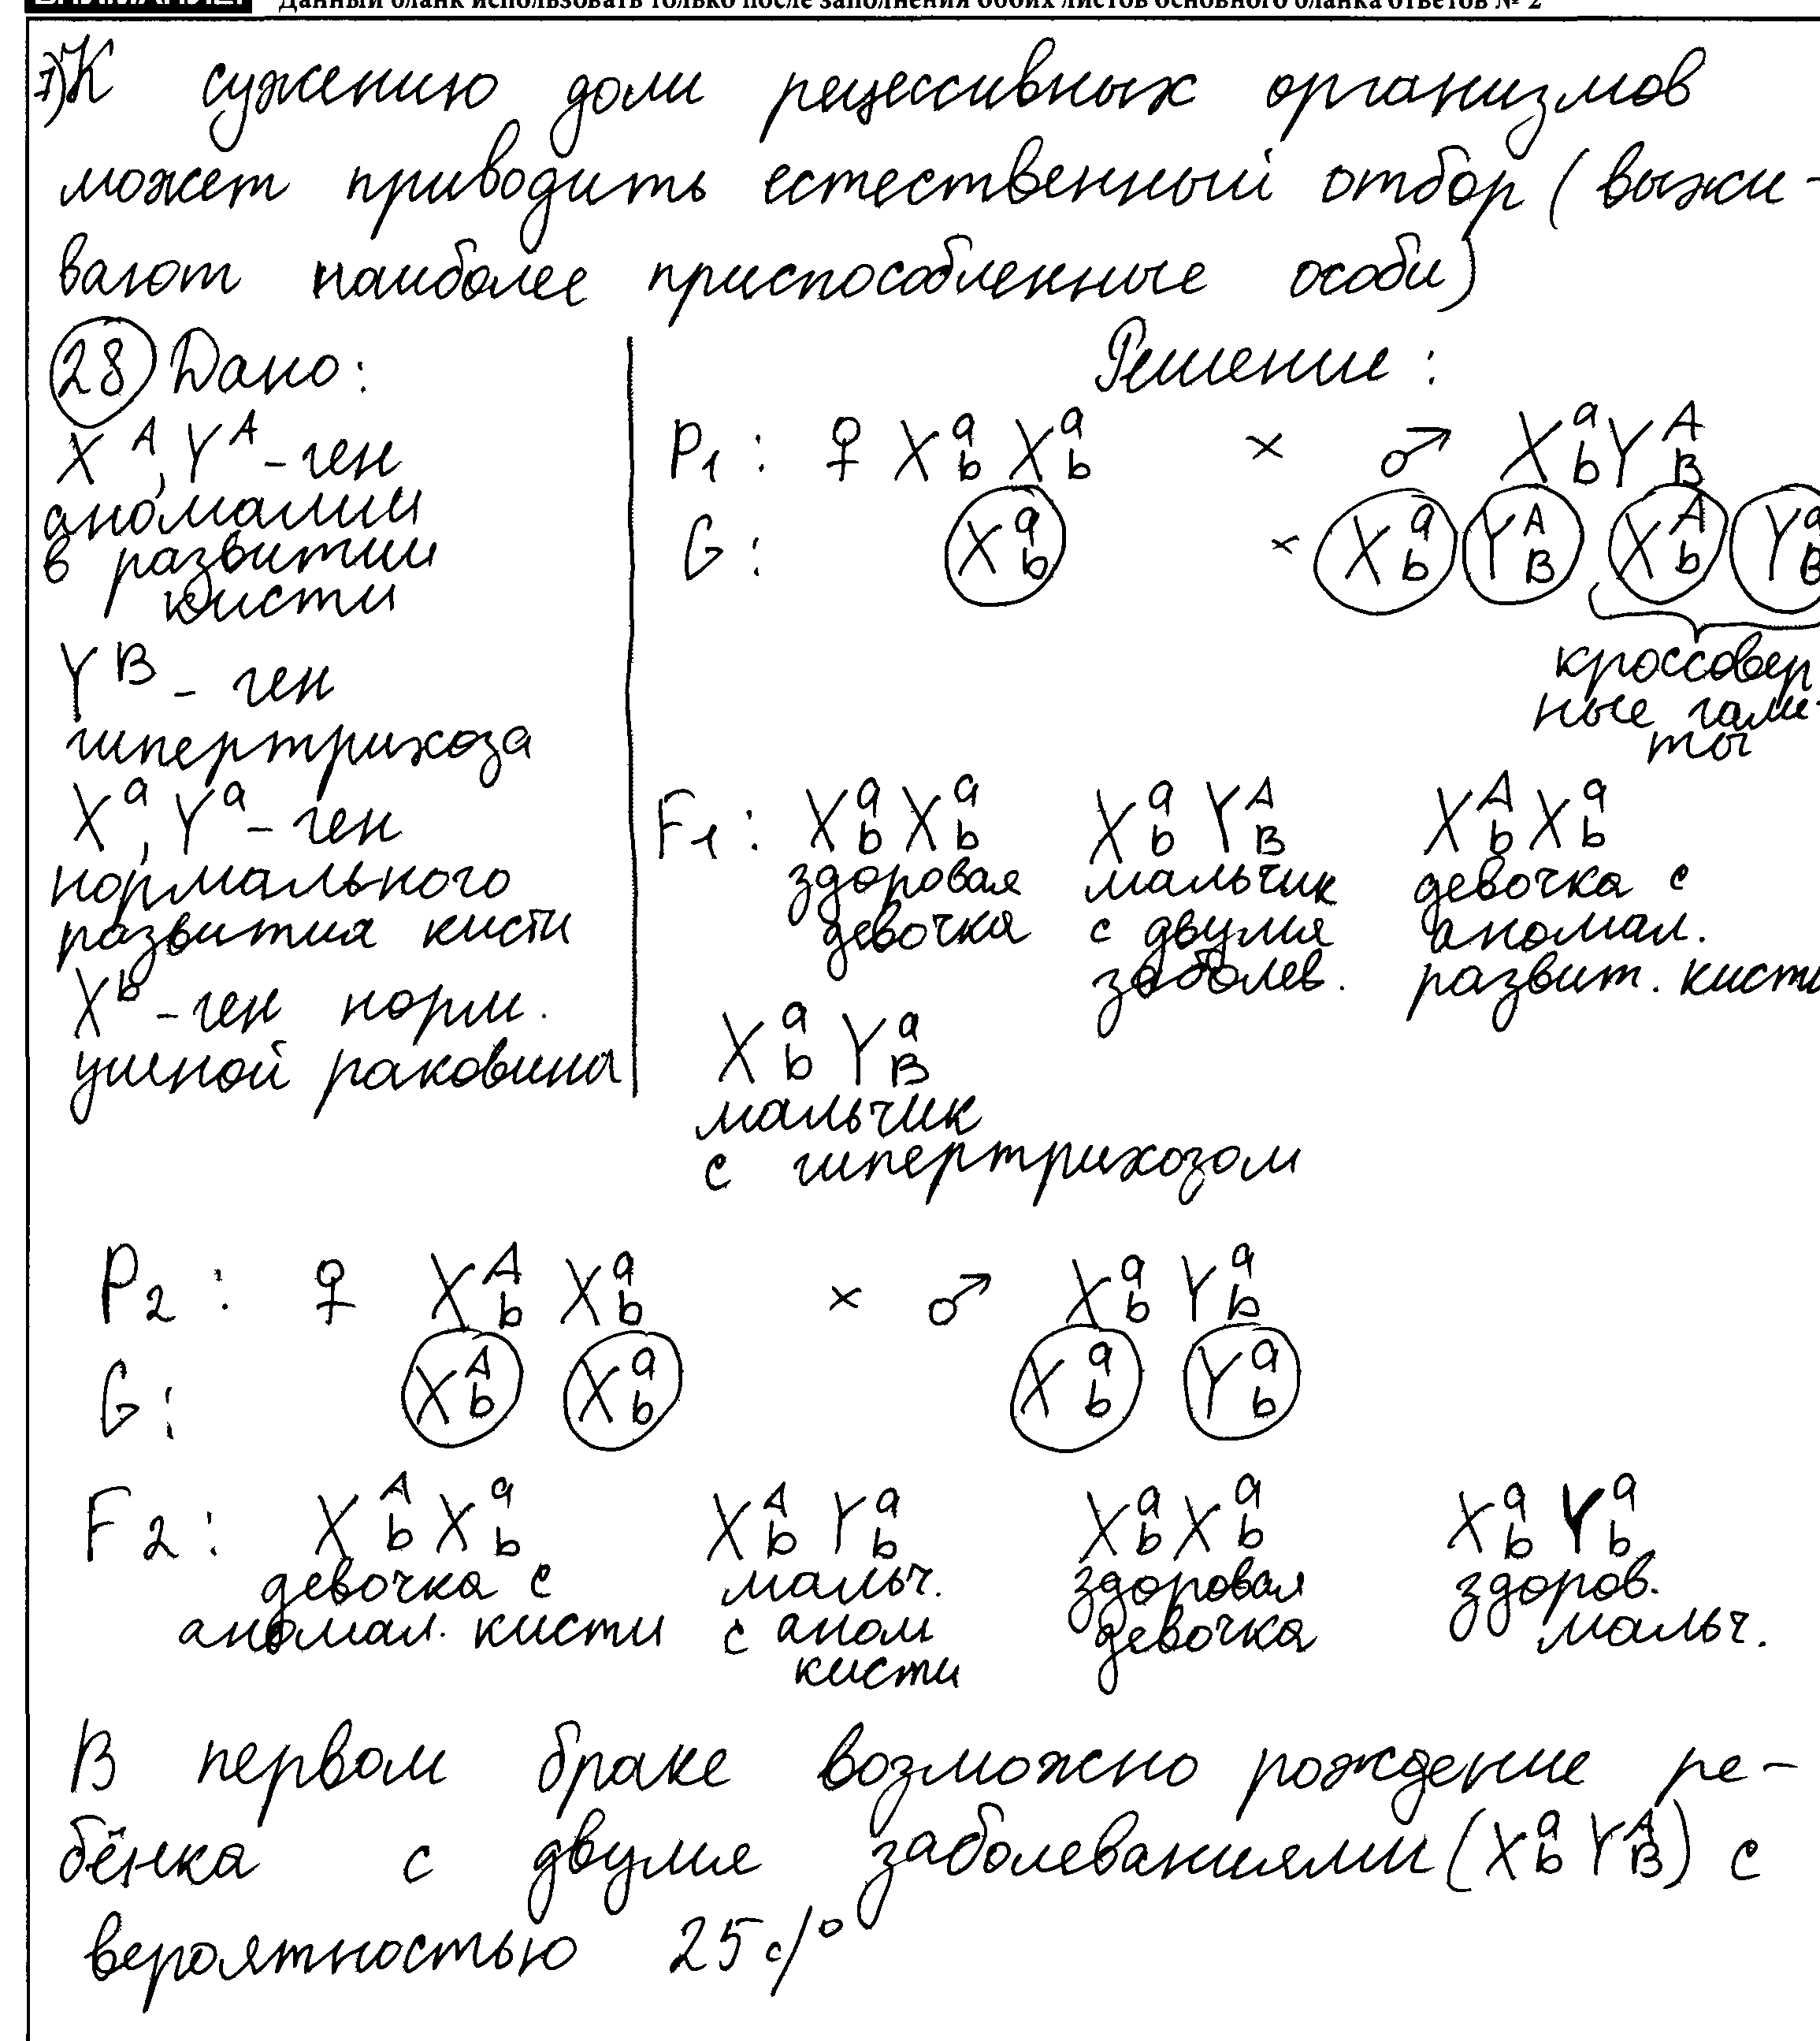 Данный бланк использовать только после заполнения обоих листов основного бланка ответов № 2
1) К сужению доли рецессивных организмов
может приводить естественный отбор (выжи-
вают наиболее приспособленные особи)
28 Дано:
X^A, Y^A - ген
аномалии
в развитии
кисти
Y^B - ген
гипертрихоза
X^a, Y^a - ген
нормального
развития кисти
X^b - ген норм.
ушной раковины
Решение:
P1: ♀ X^a_b X^a_b × ♂ X^a_b Y^A_B
G: X^a_b × X^a_b Y^A_B X^A_b Y^a_B
кроссовер
ные гаме-
ты
F1: X^a_b X^a_b X^a_b Y^A_B X^A_b X^a_b
здоровая мальчик девочка с
девочка с двумя аномал.
заболев. развит. кисти
X^a_b Y^a_B
мальчик
с гипертрихозом
P2: ♀ X^A_b X^a_b × ♂ X^a_b Y^a_b
G: X^A_b X^a_b X^a_b Y^a_b
F2: X^A_b X^a_b X^A_b Y^a_b X^a_b X^a_b X^a_b Y^a_b
девочка с мальч. здоровая здоров.
аномал. кисти с аном девочка мальч.
кисти
В первом браке возможно рождение ре-
бёнка с двумя заболеваниями (X^a_b Y^A_B) с
вероятностью 25%